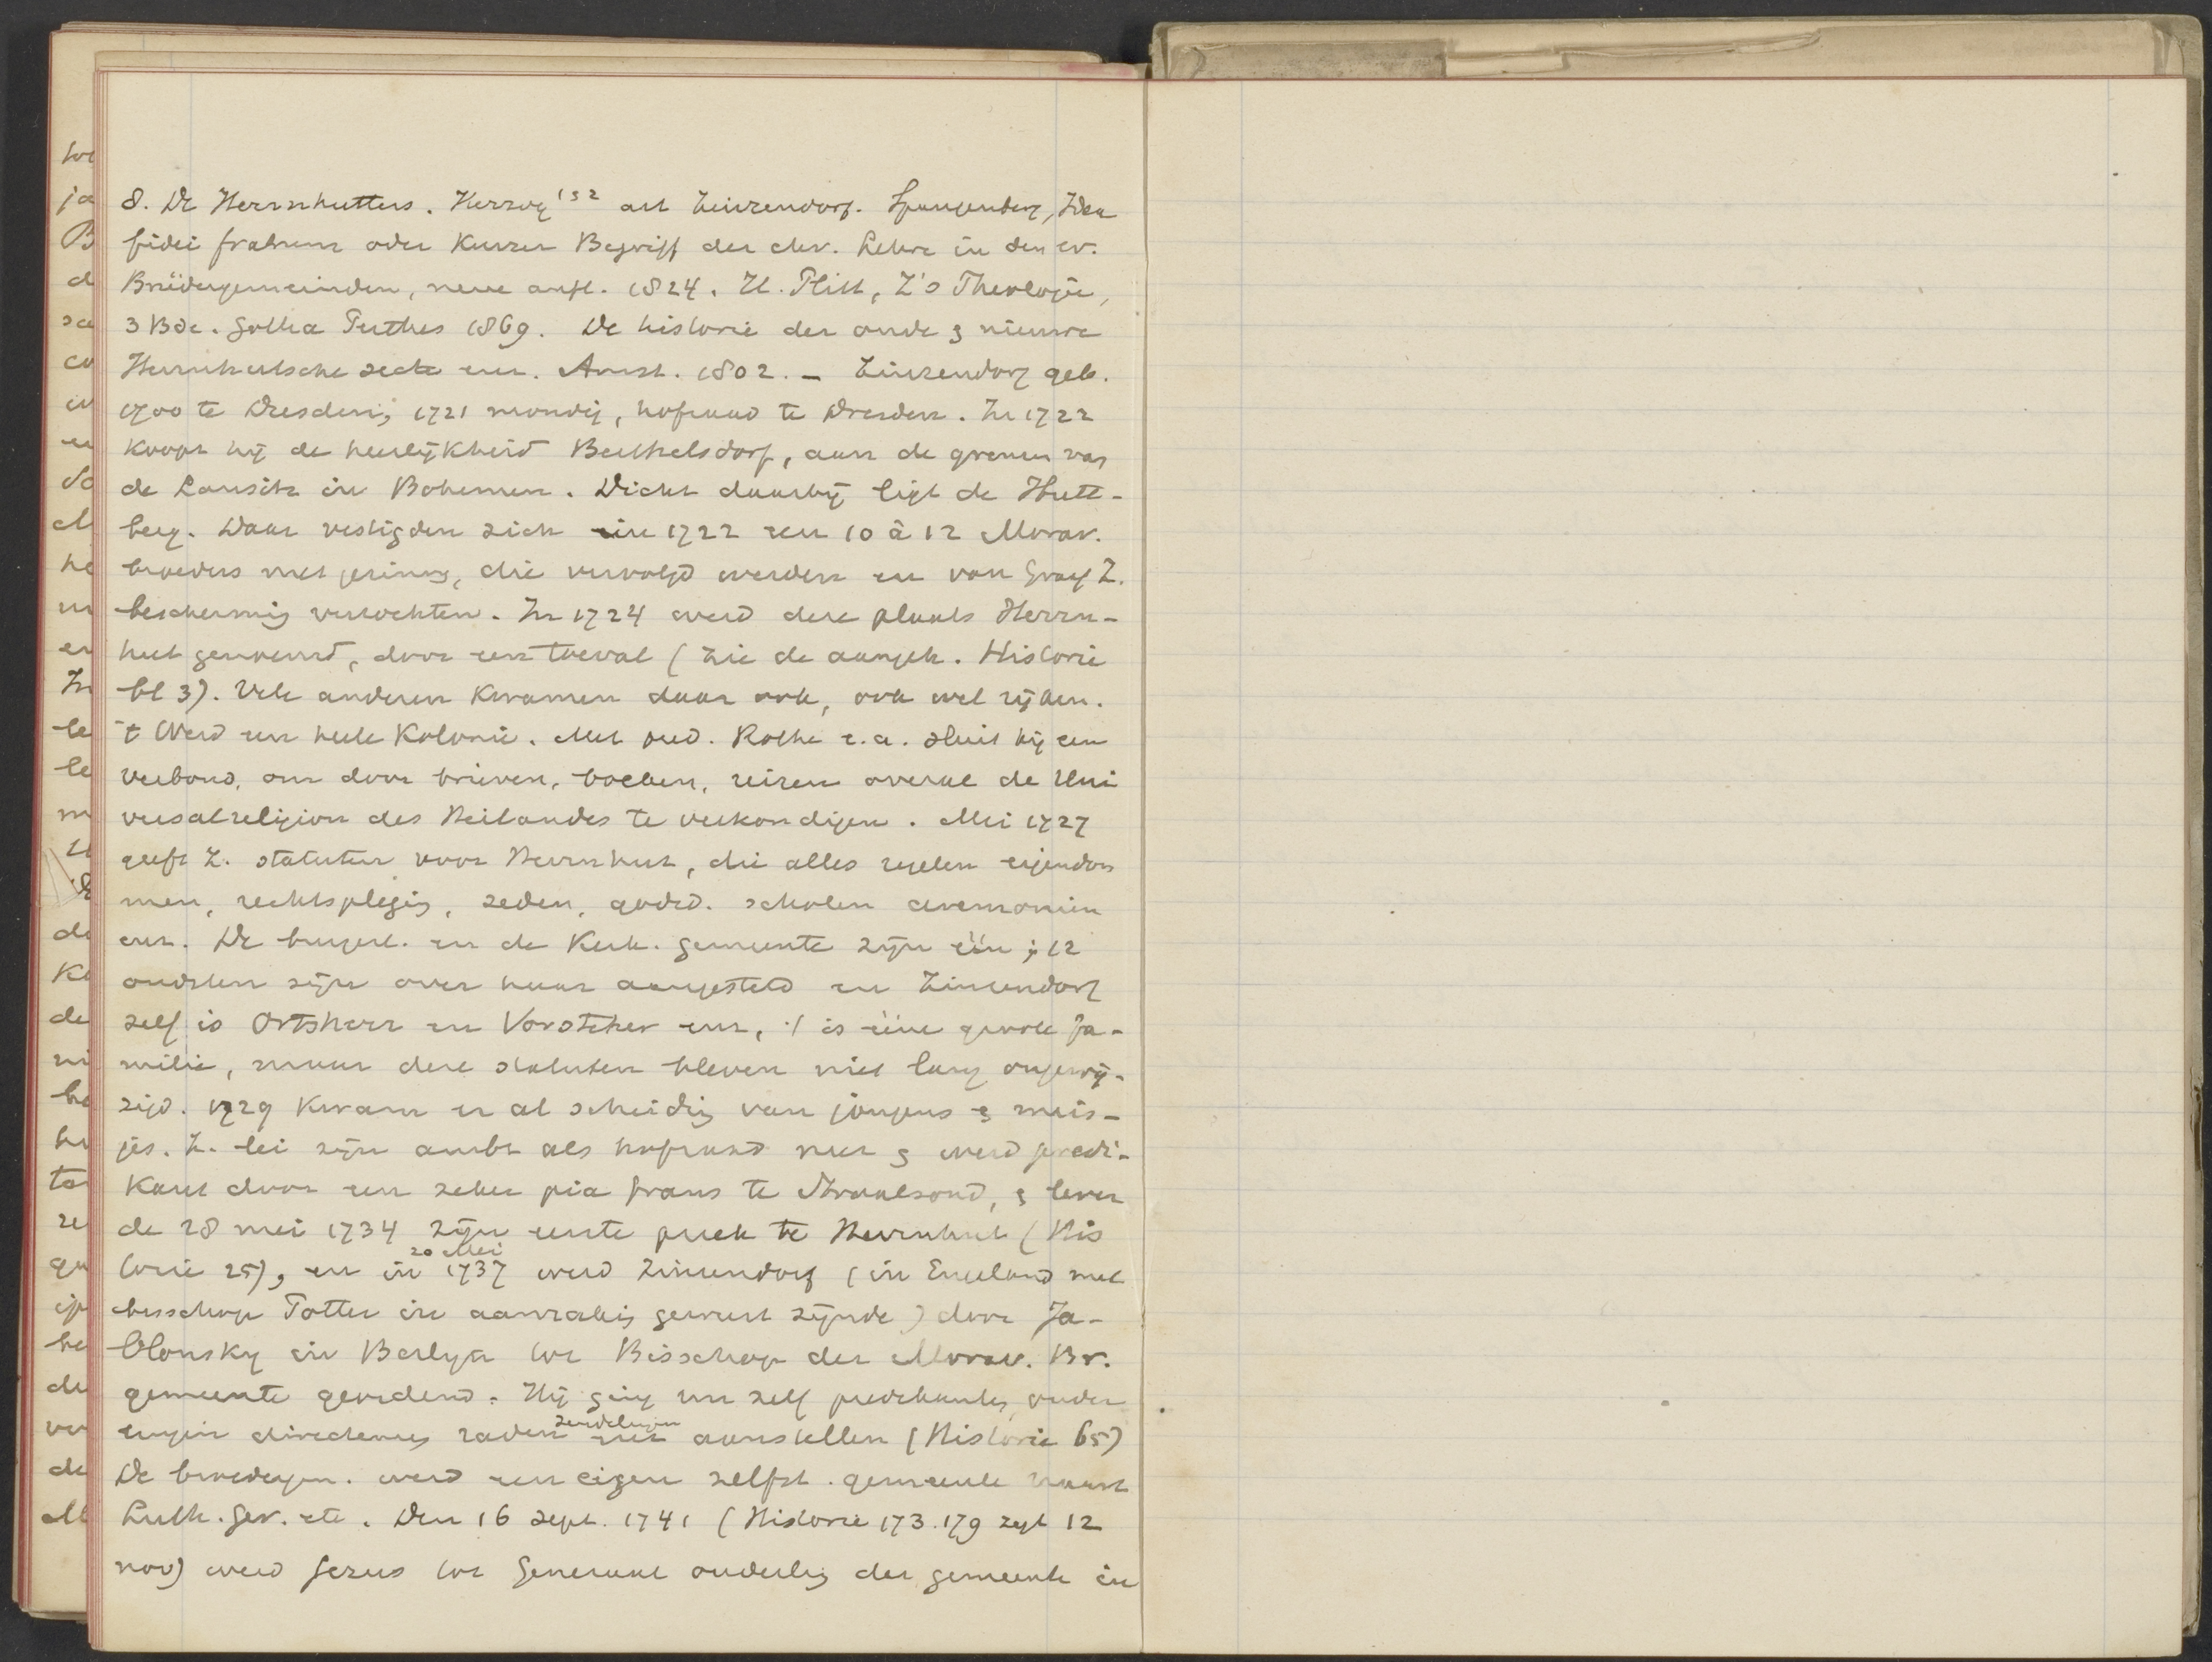 8. De Herrnhutters. Herzog¹⁵² art Zinzendorf. Spangenberg, Idea
fidei fratrum oder Kurzer Begriff der chr. Lehre in den ev.
Brüdergemeinden, neue aufl. 1824. H. Plitt, Z's Theologie,
3 Bde. Gotha Perthes 1869. De historie der oude & nieuwe
Herrnhutsche secte enz. Amst. 1802. — Zinzendorf geb.
1700 te Dresden, 1721 mondig, hofraad te Dresden. In 1722
koopt hij de heerlijkheid Berthelsdorf, aan de grenzen van
de Lausitz in Bohemen. Dicht daarbij ligt de Hutt-
berg. Daar vestigden zich in 1722 een 10 à 12 Morav.
broeders met gezinnen, die vervolgd werden en van Graaf Z.
bescherming verzochten. In 1724 werd deze plaats Herrn-
hut genoemd, door een toeval (zie de aangeh. Historie
bl 3). Vele anderen kwamen daar ook, ook wel rijken.
't Werd een heele Kolonie. Met pred. Rothe e.a. sluit hij een
verbond, om door brieven, boeken, reizen overal de Uni
versalreligion des Heilandes te verkondigen. Mei 1727
geeft Z. statuten voor Herrnhut, die alles regelen eigendom
men, rechtspleging, zeden, godsd. scholen ceremonien
enz. De burgerl. en de Kerk. gemeente zijn één; 12
oudsten zijn over haar aangesteld en Zinzendorf
zelf is Ortsherr en Vorsteher enz, 't is ééne groote fa-
milie, maar deze statuten bleven niet lang ongewij-
zigd. 1729 kwam er al scheiding van jongens & meis-
jes. Z. lei zijn ambt als hofraad neer & werd predi-
kant door een zeker pia fraus te Straalsond, & lever
de 28 mei 1734 zijn eerste preek te Herrnhut (His
torie 25), en in 20 Mei 1737 werd Zinzendorf (in Engeland met
bisschop Potter in aanraking geweest zijnde) door Ja-
blonsky in Berlijn tot Bisschop der Morav. Br.
gemeente geordend. Hij ging nu zelf predikanten, ouder
lingen raden zendelingen aanstellen (Historie 65)
De broedergem. werd een eigen zelfst. gemeente naast
Luth. Ger. etc. Den 16 sept. 1741 (Historie 173. 179 zegt 12
nov) werd Jezus tot Generaal ouderling der gemeente in